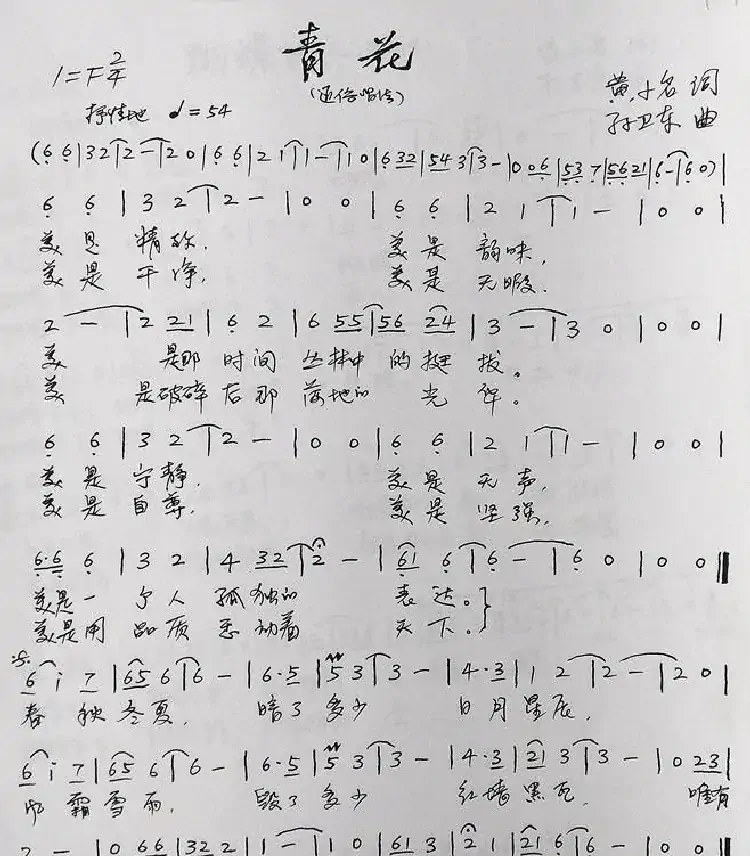 青花
1=F 2/4
(通俗唱法)
抒情地 ♩=54
黄小名 词
孙卫东 曲
(6 6|3 2|2-|2 0|6 6|2 1|1-|1 0|6 32|54 3|3-|0 06|53 7|56 21|6-|6 0)|
6 6|3 2|2-|0 0|6 6|2 1|1-|0 0|
美是 精致, 美是 韵味,
美是 干净, 美是 无暇.
2-|2 21|6 2|6 55|56 24|3-|3 0|0 0|
美 是那 时间 丛林中 的挺 拔。
美 是破碎 后那 落地的 光 辉。
6 6|3 2|2-|0 0|6 6|2 1|1-|0 0|
美是 宁静, 美是 无声,
美是 自尊, 美是 坚强,
6·6 6|3 2|4 32|2-|61 6|6-|6 0|0 0‖
美是一 个人 孤独的 表达。
美是用 品质 感动着 天下。
6 i 7|65 6|6-|6·5|5 3|3-|4·3|1 2|2-|2 0|
春秋冬夏, 暗了多少 日月星辰,
6 i 7|65 6|6-|6·5|5 3|3-|4·3|21 3|3-|0 23|
霜雪雨, 毁了多少 红墙黑瓦, 唯有
2-|0 66|32 2|1-|1 0|61 3|2 1|21 6|6-|0 0‖